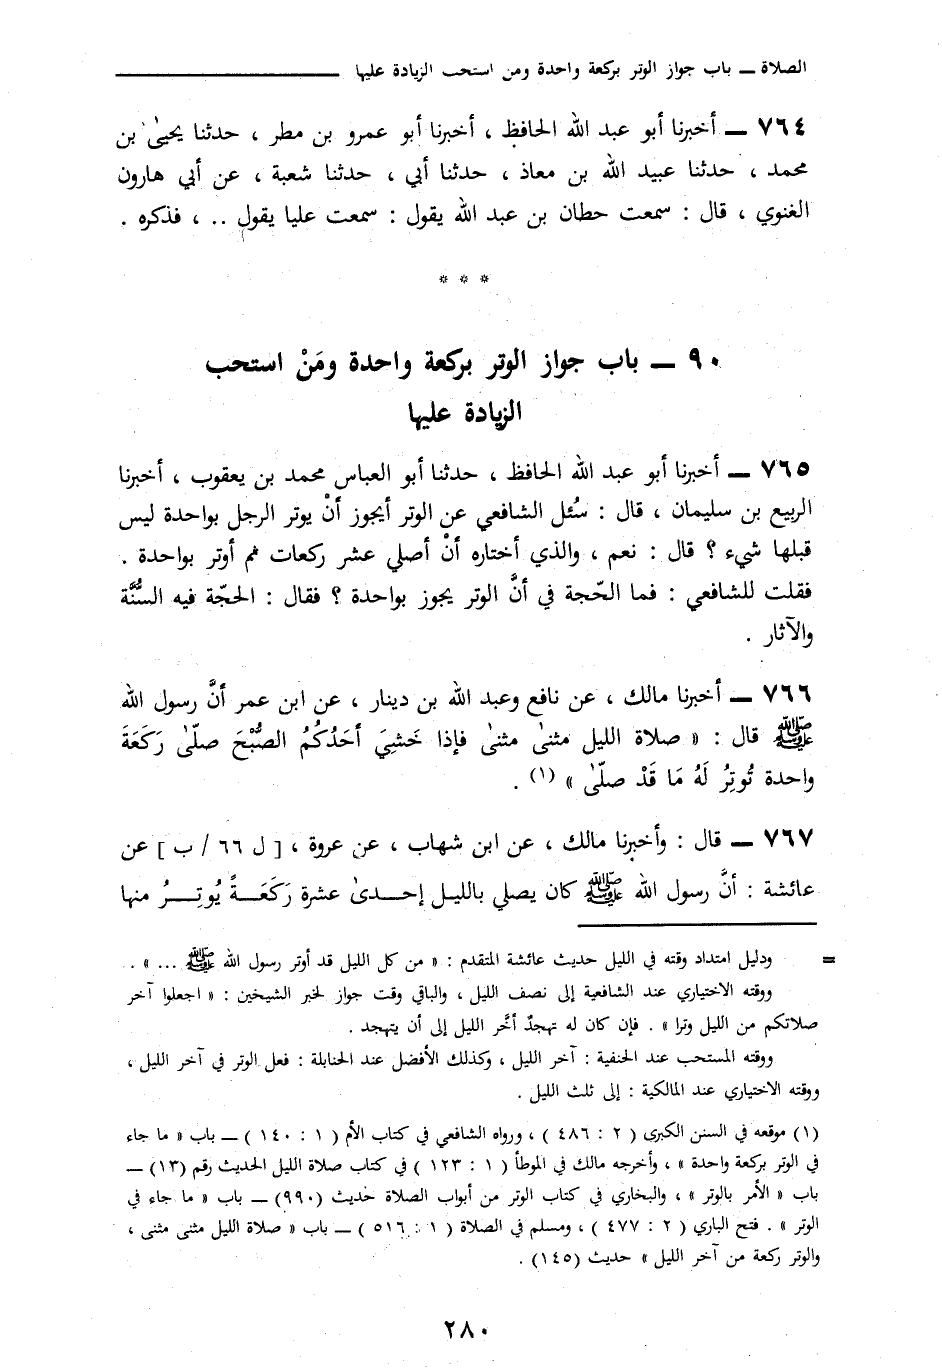 الصلاة ــ باب جواز الوتر بركعة واحدة ومن استحب الزيادة عليها
٧٦٤ ــ أخبرنا أبو عبد الله الحافظ ، أخبرنا أبو عمرو بن مطر ، حدثنا يحيىٰ بن
محمد ، حدثنا عبيد الله بن معاذ ، حدثنا أبي ، حدثنا شعبة ، عن أبي هارون
الغنوي ، قال : سمعت حطان بن عبد الله يقول : سمعت عليا يقول .. ، فذكره .
* * *
٩٠ ــ باب جواز الوتر بركعة واحدة ومَنْ استحب
الزيادة عليها
٧٦٥ ــ أخبرنا أبو عبد الله الحافظ ، حدثنا أبو العباس محمد بن يعقوب ، أخبرنا
الربيع بن سليمان ، قال : سُئل الشافعي عن الوتر أيجوز أنْ يوتر الرجل بواحدة ليس
قبلها شيء ؟ قال : نعم ، والذي أختاره أنْ أصلي عشر ركعات ثم أوتر بواحدة .
فقلت للشافعي : فما الحّجة في أنَّ الوتر يجوز بواحدة ؟ فقال : الحجّة فيه السُّنَّة
والآثار .
٧٦٦ ــ أخبرنا مالك ، عن نافع وعبد الله بن دينار ، عن ابن عمر أنَّ رسول الله
ﷺ قال : « صلاة الليل مثنىٰ مثنىٰ فإذا خَشِيَ أحَدُكُمُ الصُّبْحَ صلّىٰ رَكَعَةَ
واحدة تُوتِرُ لَهُ مَا قَدْ صلّىٰ » (١) .
٧٦٧ ــ قال : وأخبرنا مالك ، عن ابن شهاب ، عن عروة ، [ ل ٦٦ / ب ] عن
عائشة : أنَّ رسول الله ﷺ كان يصلي بالليل إحدىٰ عشرة رَكَعَةً يُوتِرُ منها
= ودليل امتداد وقته في الليل حديث عائشة المتقدم : « من كل الليل قد أوتر رسول الله ﷺ ... » .
ووقته الاختياري عند الشافعية إلى نصف الليل ، والباقي وقت جواز لخبر الشيخين : « اجعلوا آخر
صلاتكم من الليل وترا » . فإن كان له تهجدٌ أخَّر الليل إلى أن يتهجد .
ووقته المستحب عند الحنفية : آخر الليل ، وكذلك الأفضل عند الحنابلة : فعل الوتر في آخر الليل ،
ووقته الاختياري عند المالكية : إلى ثلث الليل .
(١) موقعه في السنن الكبرى ( ٢ : ٤٨٦ ) ، ورواه الشافعي في كتاب الأم ( ١ : ١٤٠ ) ــ باب « ما جاء
في الوتر بركعة واحدة » ، وأخرجه مالك في الموطأ ( ١ : ١٢٣ ) في كتاب صلاة الليل الحديث رقم (١٣) ــ
باب « الأمر بالوتر » ، والبخاري في كتاب الوتر من أبواب الصلاة حديث (٩٩٠) ــ باب « ما جاء في
الوتر » . فتح الباري ( ٢ : ٤٧٧ ) ، ومسلم في الصلاة ( ١ : ٥١٦ ) ــ باب « صلاة الليل مثنى مثنى ،
والوتر ركعة من آخر الليل » حديث (١٤٥) .
٢٨٠